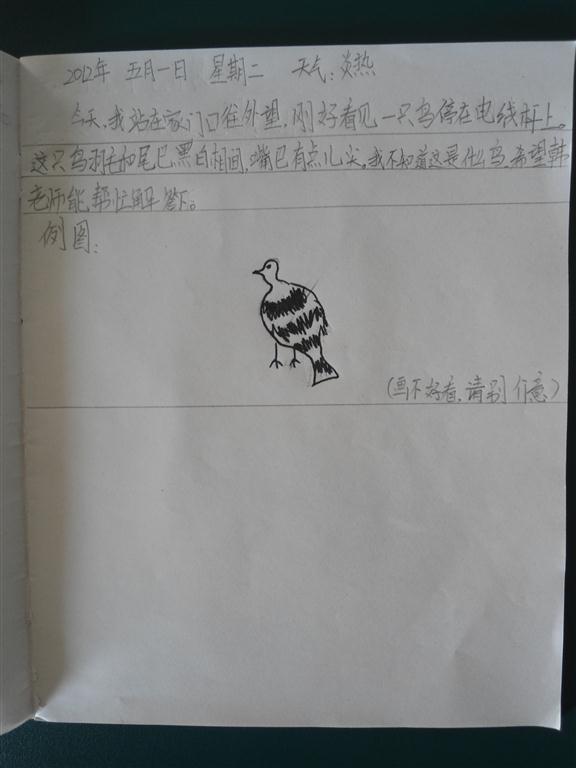 2012年 五月一日 星期二 天气:炎热
今天,我站在家门口往外望,刚好看见一只鸟停在电线杆上。
这只鸟羽毛和尾巴黑白相间,嘴巴有点儿尖。我不知道这是什么鸟,希望韩
老师能帮忙解答下。
例图:
(画不好看,请别介意)